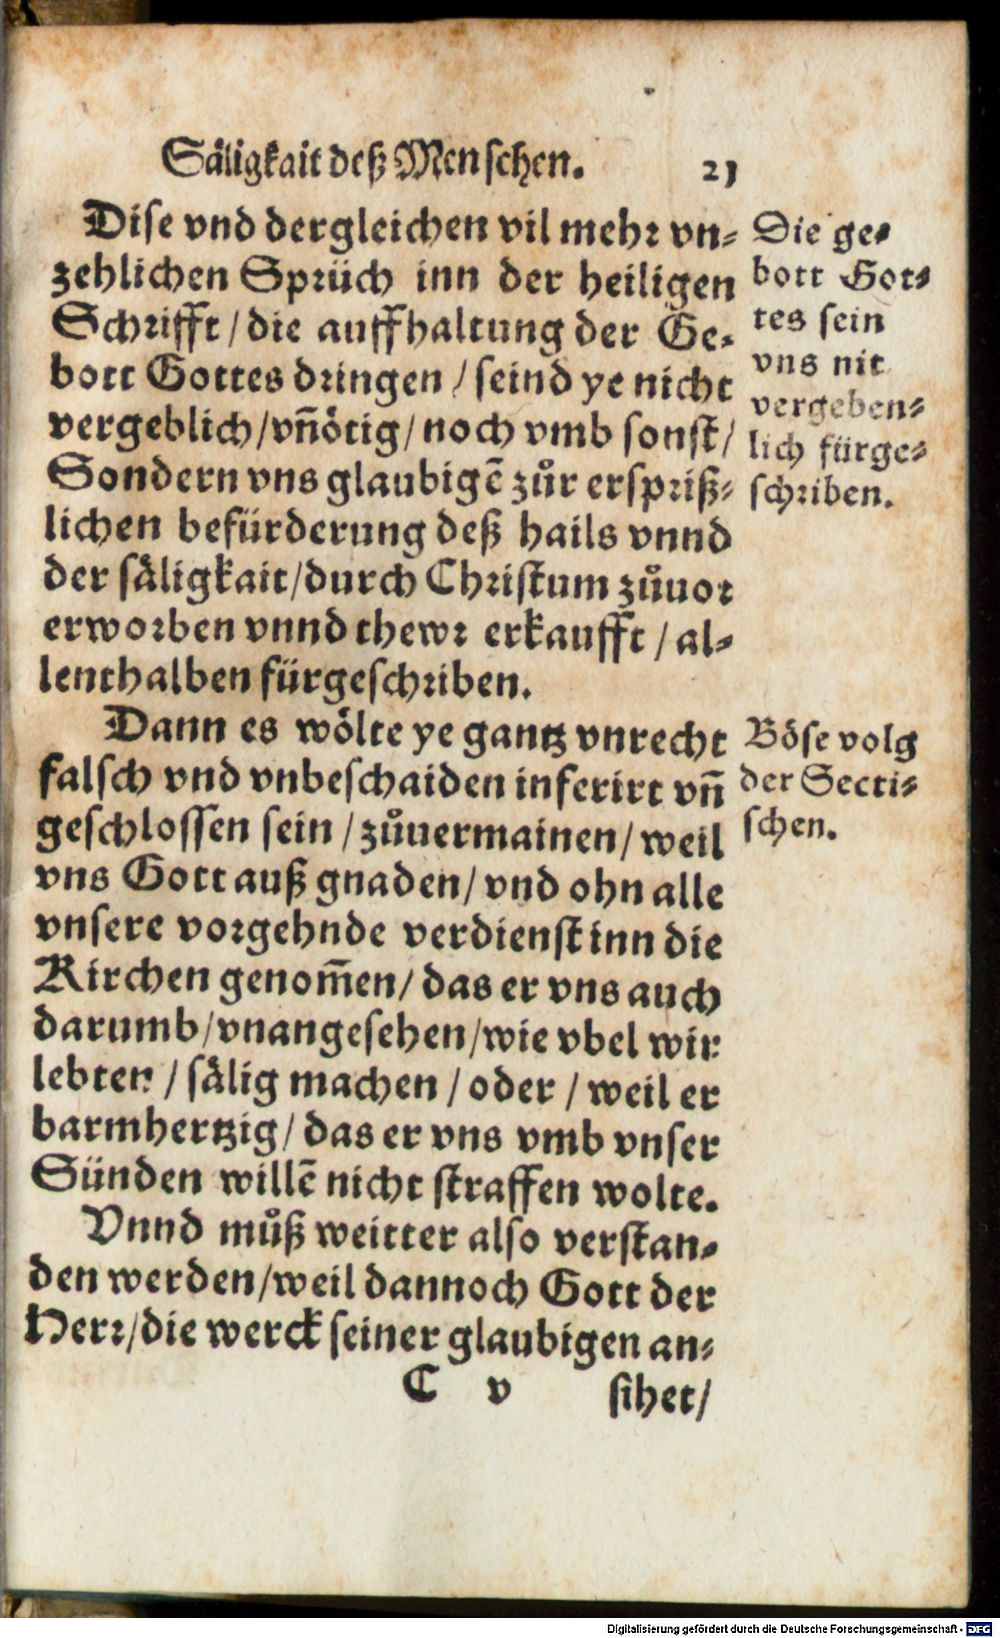 Säligkait deß Menschen. 21
Dise vnd dergleichen vil mehr vn-
zehlichen Sprüch inn der heiligen
Schrifft / die auffhaltung der Ge-
bott Gottes dringen / seind ye nicht
vergeblich / vñötig / noch vmb sonst /
Sondern vns glaubigẽ zůr ersprißz-
lichen befürderung deß hails vnnd
der säligkait / durch Christum zůuor
erworben vnnd thewr erkaufft / al-
lenthalben fürgeschriben.
Die ge-
bott Got-
tes sein
vns nit
vergeben-
lich fürge-
schriben.
Dann es wölte ye gantz vnrecht
falsch vnd vnbeschaiden inferirt vñ
geschlossen sein / zůuermainen / weil
vns Gott auß gnaden / vnd ohn alle
vnsere vorgehnde verdienst inn die
Kirchen genom̃en / das er vns auch
darumb / vnangesehen / wie vbel wir
lebten / sälig machen / oder / weil er
barmhertzig / das er vns vmb vnser
Sünden willẽ nicht straffen wolte.
Böse volg
der Secti-
schen.
Vnnd můß weitter also verstan-
den werden / weil dannoch Gott der
Herr / die werck seiner glaubigen an-
C v sihet /
Digitalisierung gefördert durch die Deutsche Forschungsgemeinschaft - DFG